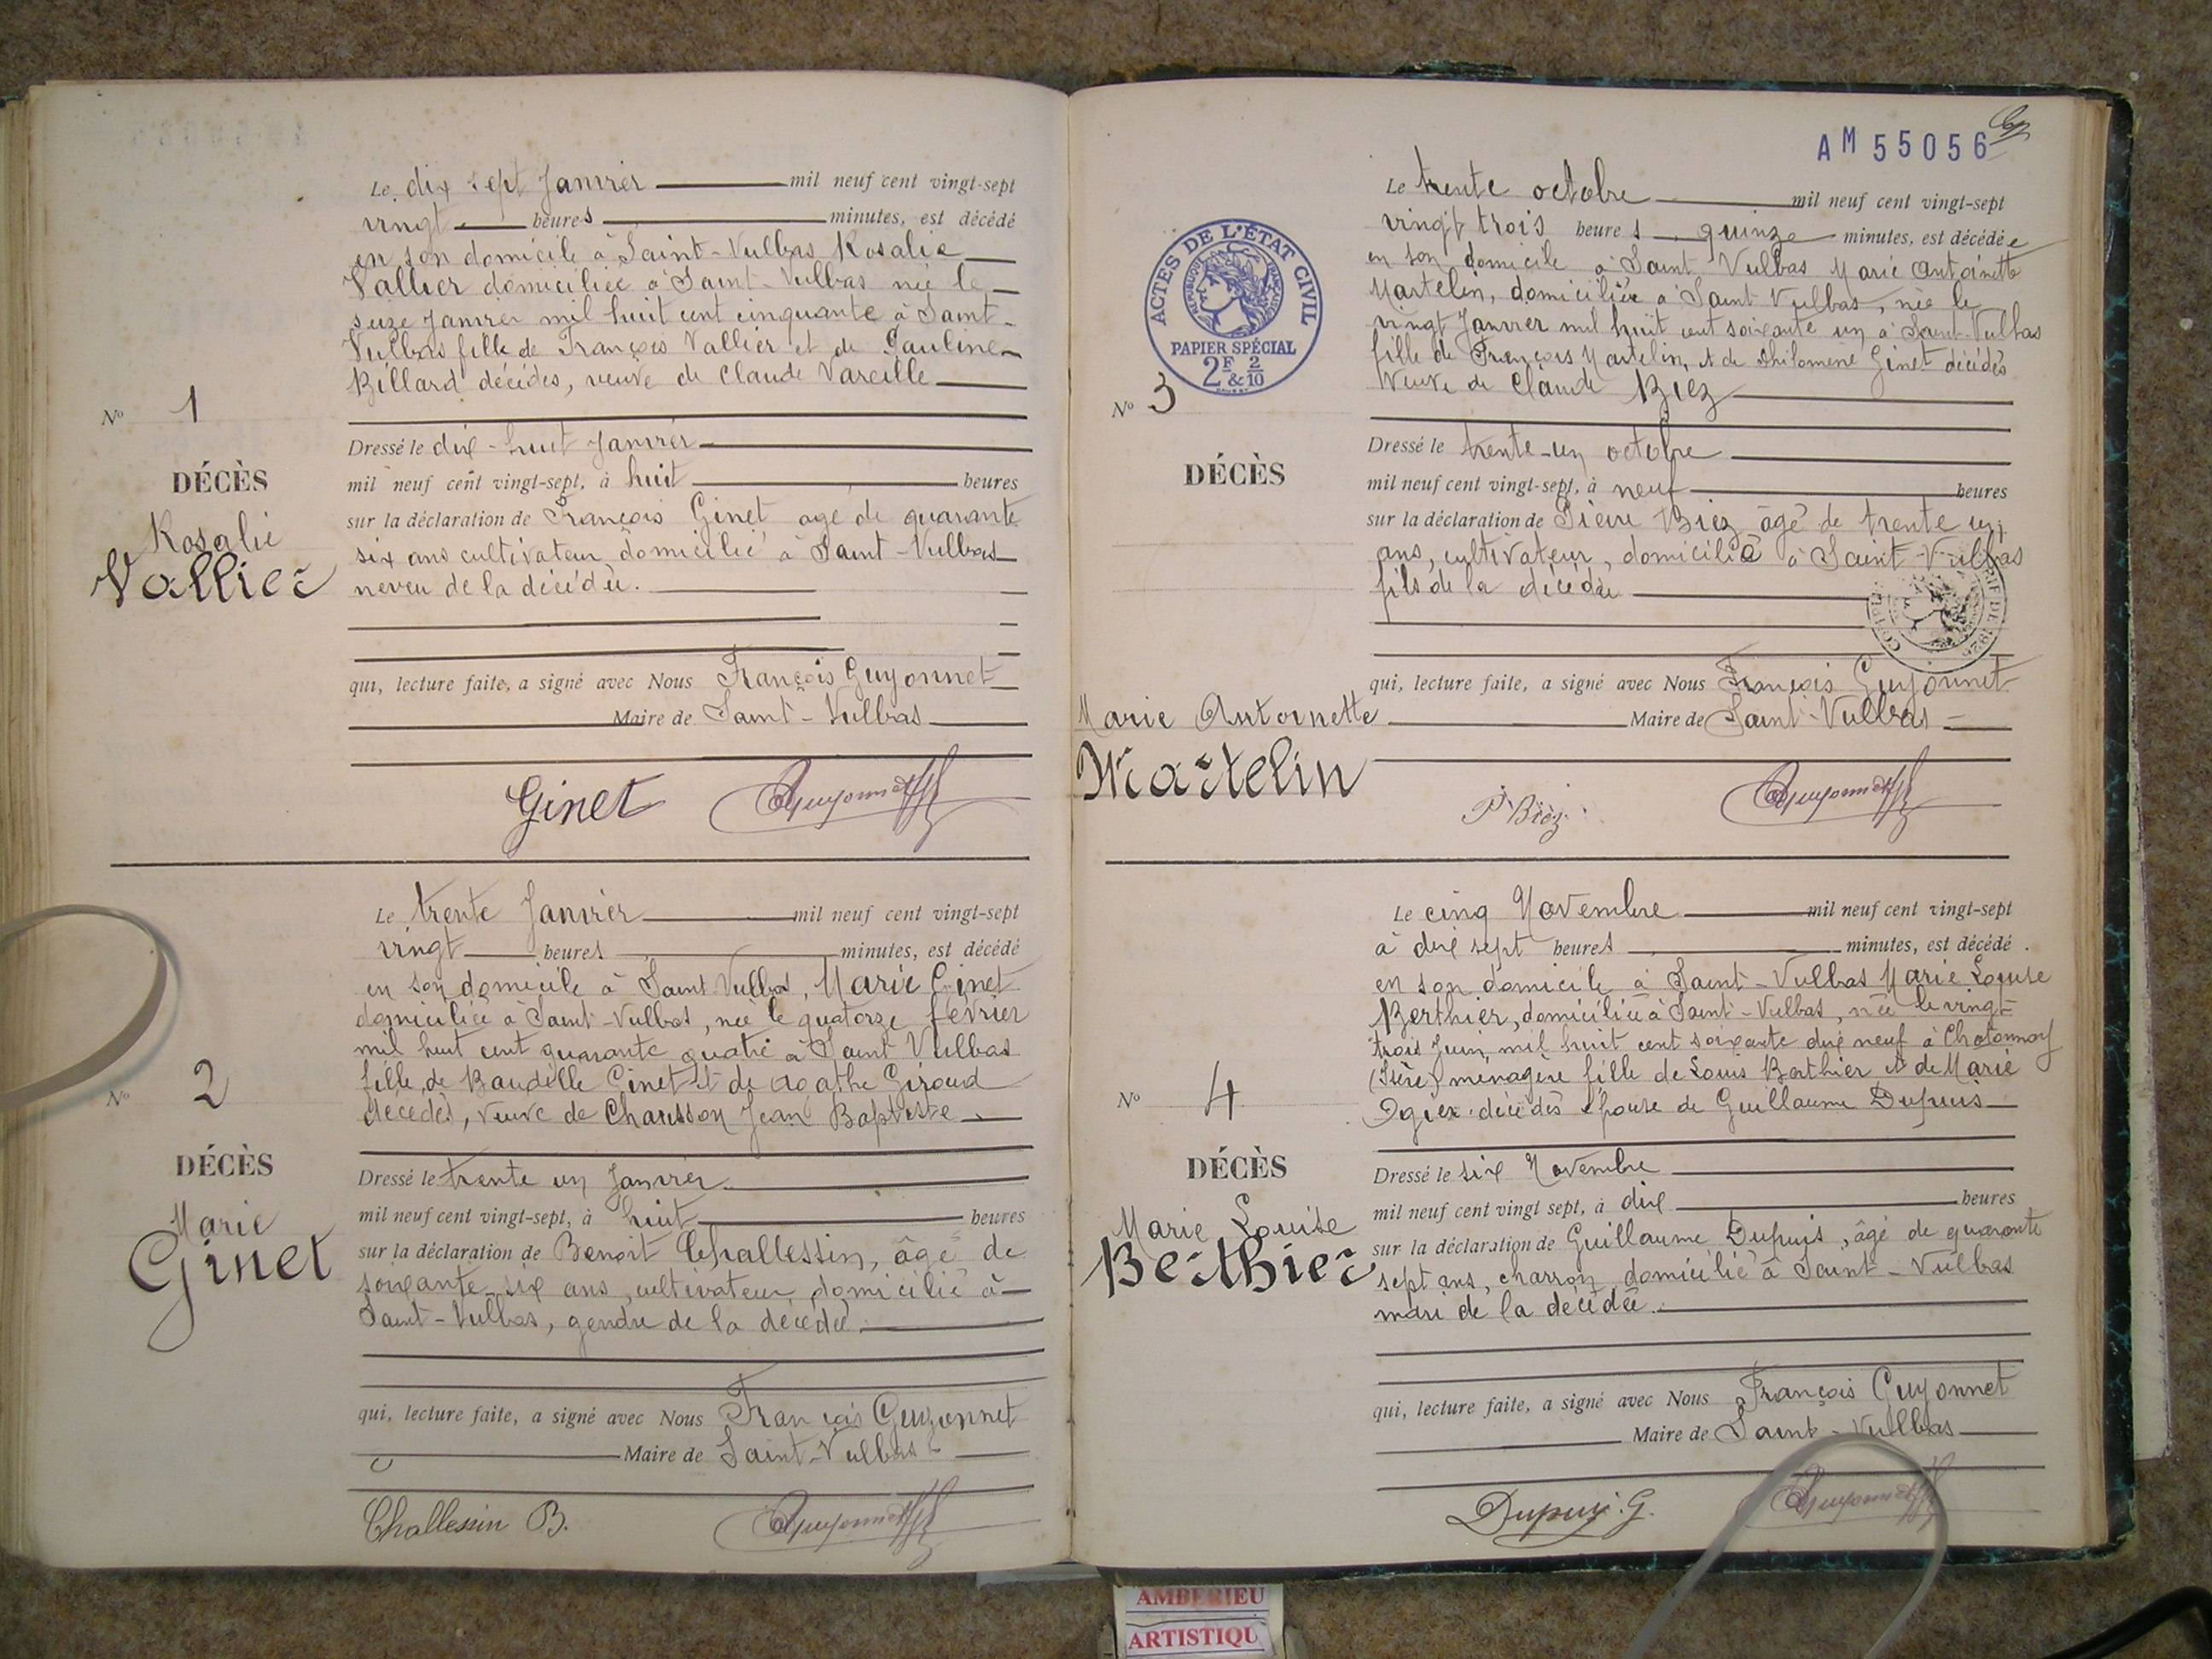 Le dix sept Janvier mil neuf cent vingt-sept
vingt heures minutes, est décédé
en son domicile à Saint-Vulbas Rosalie
Vallier domiciliée à Saint-Vulbas née le
seize Janvier mil huit cent cinquante à Saint-
Vulbas fille de François Vallier et de Pauline
Billard décédés, veuve de Claude Vareille
Nº 1
DÉCÈS
Rosalie
Vallier
Dressé le dix-huit Janvier
mil neuf cent vingt-sept, à huit heures
sur la déclaration de François Ginet agé de quarante
six ans cultivateur domicilié à Saint-Vulbas
neveu de la décédée.
qui, lecture faite, a signé avec Nous François Guyonnet
Maire de Saint-Vulbas
Ginet Guyonnet
Le trente Janvier mil neuf cent vingt-sept
vingt heures minutes, est décédé
en son domicile à Saint Vulbas, Marie Ginet
domiciliée à Saint-Vulbas, née le quatorze février
mil huit cent quarante quatre à Saint Vulbas
fille de Baudille Ginet et de Agathe Giroud
décédés, veuve de Charisson Jean Baptiste
Nº 2
DÉCÈS
Marie
Ginet
Dressé le trente un Janvier
mil neuf cent vingt-sept, à huit heures
sur la déclaration de Benoit Challessin, âgé de
soixante-six ans, cultivateur domicilié à
Saint-Vulbas, gendre de la décédée.
qui, lecture faite, a signé avec Nous François Guyonnet
Maire de Saint-Vulbas
Challessin B. Guyonnet
AM 55056
ACTES DE L'ÉTAT CIVIL
RÉPUBLIQUE FRANÇAISE
PAPIER SPÉCIAL
2F & 2/10
Le trente octobre mil neuf cent vingt-sept
vingt trois heures quinze minutes, est décédée
en son domicile à Saint Vulbas Marie Antoinette
Martelin, domiciliée à Saint Vulbas, née le
vingt Janvier mil huit cent soixante un à Saint-Vulbas
fille de François Martelin, et de Philomene Ginet décédés
Veuve de Claude Biez
Nº 3
DÉCÈS
Marie Antoinette
Martelin
Dressé le trente-un octobre
mil neuf cent vingt-sept, à neuf heures
sur la déclaration de Pierre Biez âgé de trente un
ans, cultivateur, domicilié à Saint-Vulbas
fils de la décédée
qui, lecture faite, a signé avec Nous François Guyonnet
Maire de Saint-Vulbas
P Bièz Guyonnet
Le cinq Novembre mil neuf cent vingt-sept
à dix sept heures minutes, est décédé
en son domicile à Saint-Vulbas Marie Louise
Berthier, domiciliée à Saint-Vulbas, née le vingt-
trois Juin mil huit cent soixante dix neuf à Chatonnay
(Isère) ménagère fille de Louis Berthier et de Marie
Ogier décédés épouse de Guillaume Dupuis
Nº 4
DÉCÈS
Marie Louise
Berthier
Dressé le six Novembre
mil neuf cent vingt sept, à dix heures
sur la déclaration de Guillaume Dupuis, âgé de quarante
sept ans, charron domicilié à Saint-Vulbas
mari de la décédée
qui, lecture faite, a signé avec Nous François Guyonnet
Maire de Saint-Vulbas
Dupuis. G. Guyonnet
AMBERIEU
ARTISTIQU